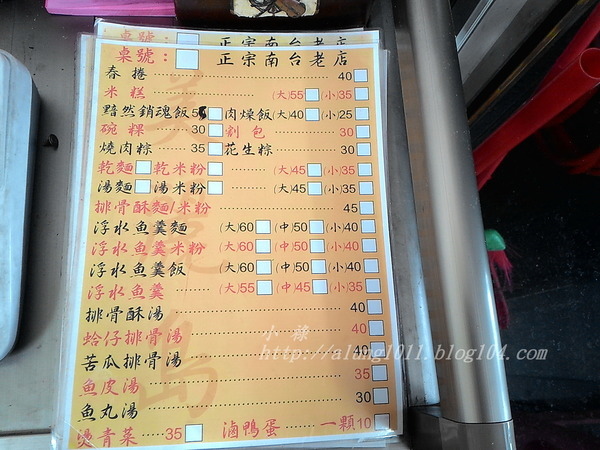 桌號： 正宗南台老店
桌號： 正宗南台老店
春捲 40
米糕 (大)55 (小)35
黯然銷魂飯 5 肉燥飯(大)40 (小)25
碗粿 30 割包 30
燒肉粽 35 花生粽 30
乾麵 乾米粉 (大)45 (小)35
湯麵 湯米粉 (大)45 (小)35
排骨酥麵/米粉 45
浮水魚羹麵 (大)60 (中)50 (小)40
浮水魚羹米粉 (大)60 (中)50 (小)40
浮水魚羹飯 (大)60 (中)50 (小)40
浮水魚羹 (大)55 (中)45 (小)35
排骨酥湯 40
蛤仔排骨湯 40
苦瓜排骨湯 40
魚皮湯 35
魚丸湯 30
燙青菜 35 滷鴨蛋 一顆10
小祿
http://alang1011.blog104.com